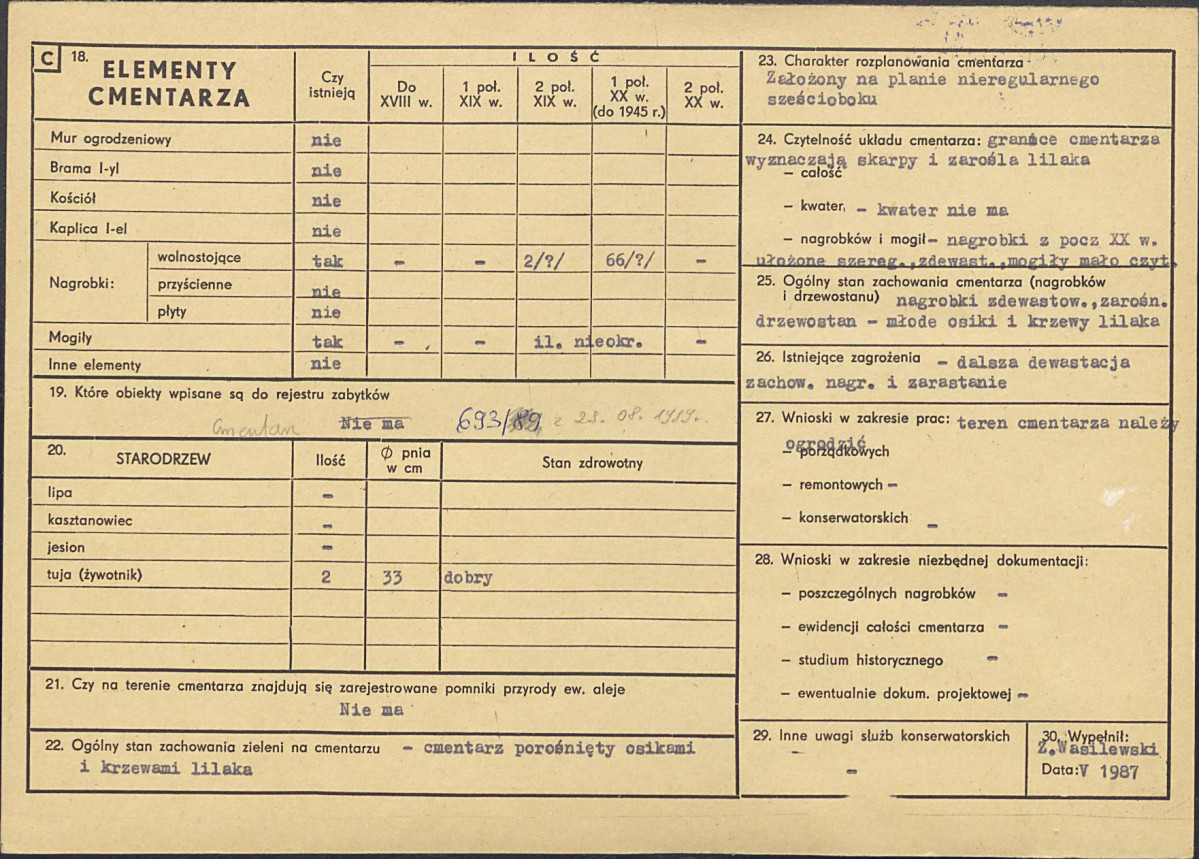 C 18. ELEMENTY CMENTARZA
Czy istnieją
I L O Ś Ć
Do XVIII w.
1 poł. XIX w.
2 poł. XIX w.
1 poł. XX w. (do 1945 r.)
2 poł. XX w.
Mur ogrodzeniowy nie
Brama I-yl nie
Kościół nie
Kaplica I-el nie
Nagrobki:
wolnostojące tak – – 2/?/ 66/?/ –
przyścienne nie
płyty nie
Mogiły tak – – il. nieokr. –
Inne elementy nie
19. Które obiekty wpisane są do rejestru zabytków
Cmentarz Nie ma 693/89 z 23. 08. 1989r.
20. STARODRZEW
Ilość
Ø pnia w cm
Stan zdrowotny
lipa –
kasztanowiec –
jesion –
tuja (żywotnik) 2 33 dobry
21. Czy na terenie cmentarza znajdują się zarejestrowane pomniki przyrody ew. aleje
Nie ma
22. Ogólny stan zachowania zieleni na cmentarzu – cmentarz porośnięty osikami
i krzewami lilaka
23. Charakter rozplanowania cmentarza
Założony na planie nieregularnego
sześcioboku
24. Czytelność układu cmentarza: granice cmentarza
wyznaczają skarpy i zarośla lilaka
– całość
– kwater, – kwater nie ma
– nagrobków i mogił – nagrobki z pocz XX w.
ułożone szereg.,zdewast.,mogiły mało czyt.
25. Ogólny stan zachowania cmentarza (nagrobków
i drzewostanu) nagrobki zdewastow.,zarośn.
drzewostan – młode osiki i krzewy lilaka
26. Istniejące zagrożenia – dalsza dewastacja
zachow. nagr. i zarastanie
27. Wnioski w zakresie prac: teren cmentarza należy
ogrodzić
– porządkowych
– remontowych –
– konserwatorskich –
28. Wnioski w zakresie niezbędnej dokumentacji:
– poszczególnych nagrobków –
– ewidencji całości cmentarza –
– studium historycznego –
– ewentualnie dokum. projektowej –
29. Inne uwagi służb konserwatorskich
–
30. Wypełnił:
Z.Wasilewski
Data: V 1987